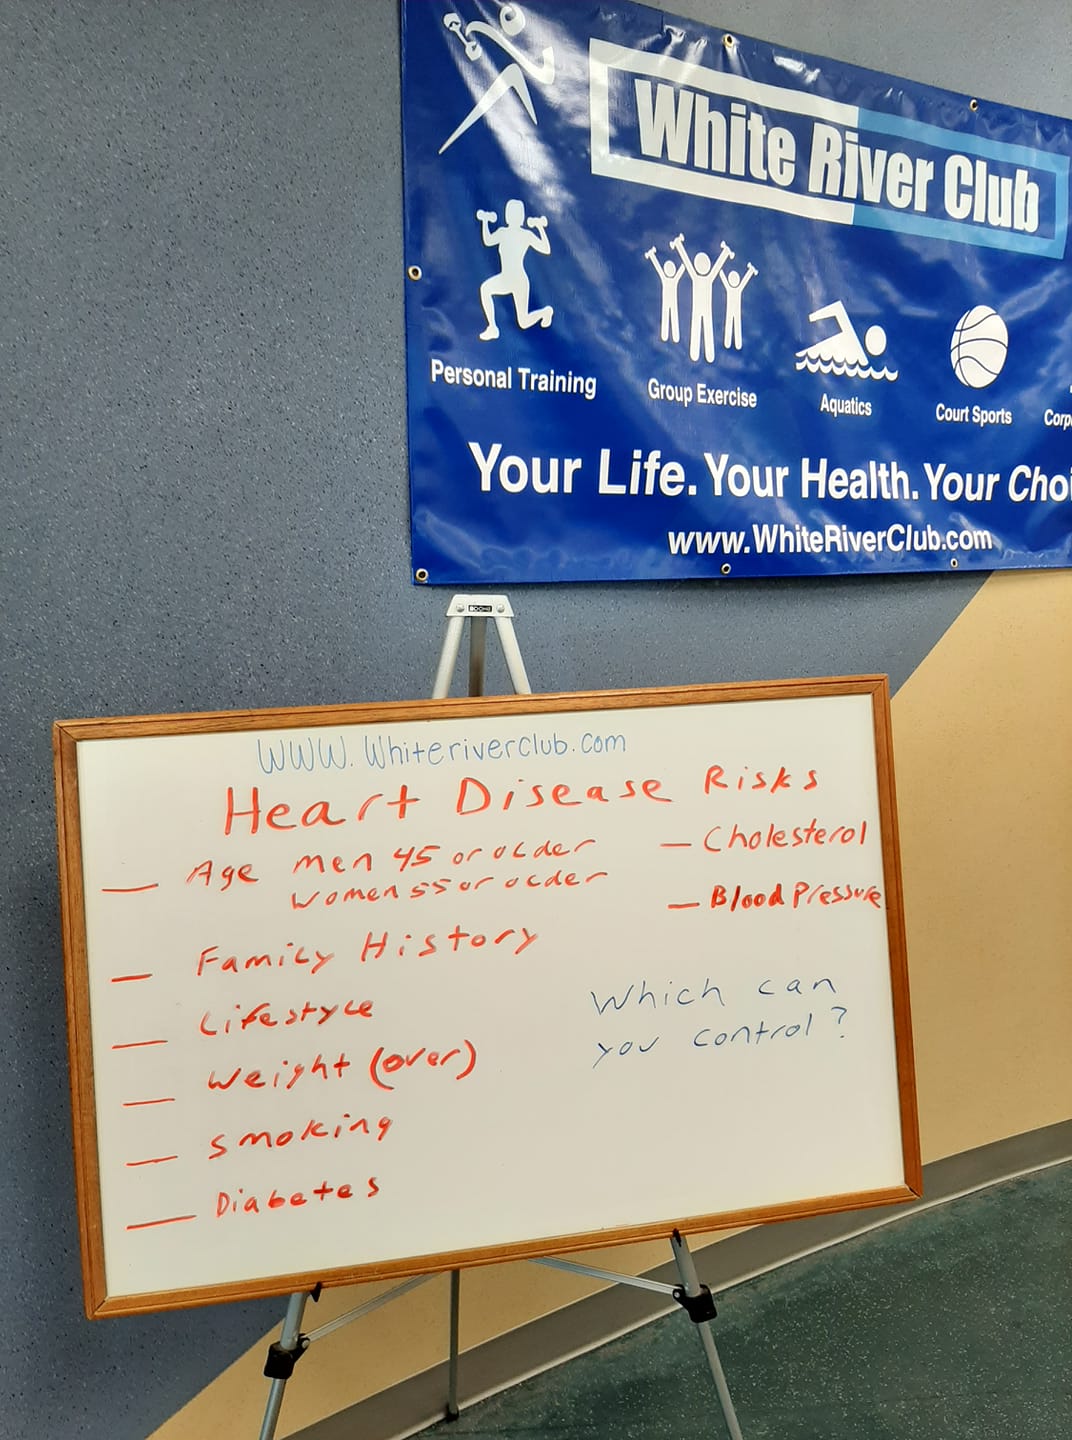 White River Club
Personal Training
Group Exercise
Aquatics
Court Sports
Your Life. Your Health. Your
www.WhiteRiverClub.com
WWW.Whiteriverclub.com
Heart Disease Risks
Age men 45 or older
women 55 or older
Family History
Lifestyle
Weight (over)
Smoking
Diabetes
Cholesterol
Blood Pressure
Which can
you control?